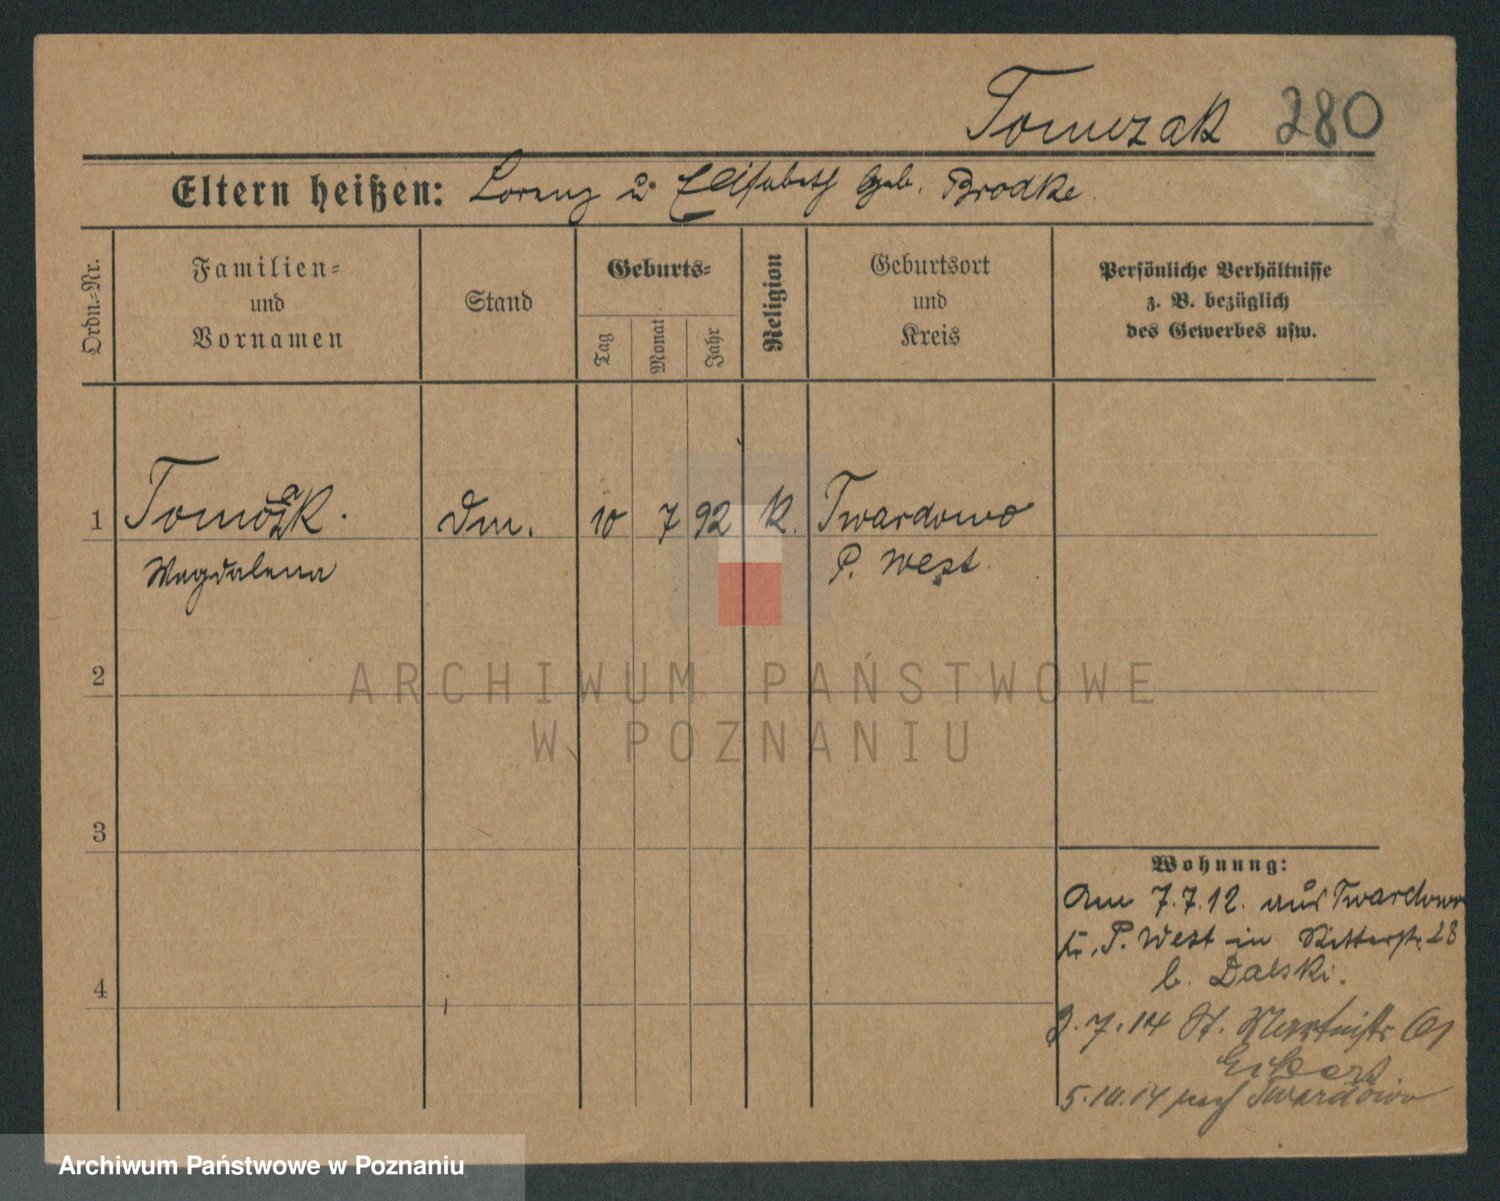 Tomczak 280
Eltern heißen: Lorenz u Elisabeth geb. Brodke.
Ordn.-Nr.
Familien-
und
Vornamen
Stand
Geburts-
Tag
Monat
Jahr
Religion
Geburtsort
und
Kreis
Persönliche Verhältnisse
z. B. bezüglich
des Gewerbes usw.
1 Tomczak. Dm. 10 7 92 K. Twardowo
Magdalena P. West
2
3
4
Wohnung:
Am 7.7.12. aus Twardowo
Kr. P. West in Ritterstr. 28
b. Dalski.
2.7.14 St. Martinstr 61
5.10.14 nach Twardowo
ARCHIWUM PAŃSTWOWE
W POZNANIU
Archiwum Państwowe w Poznaniu